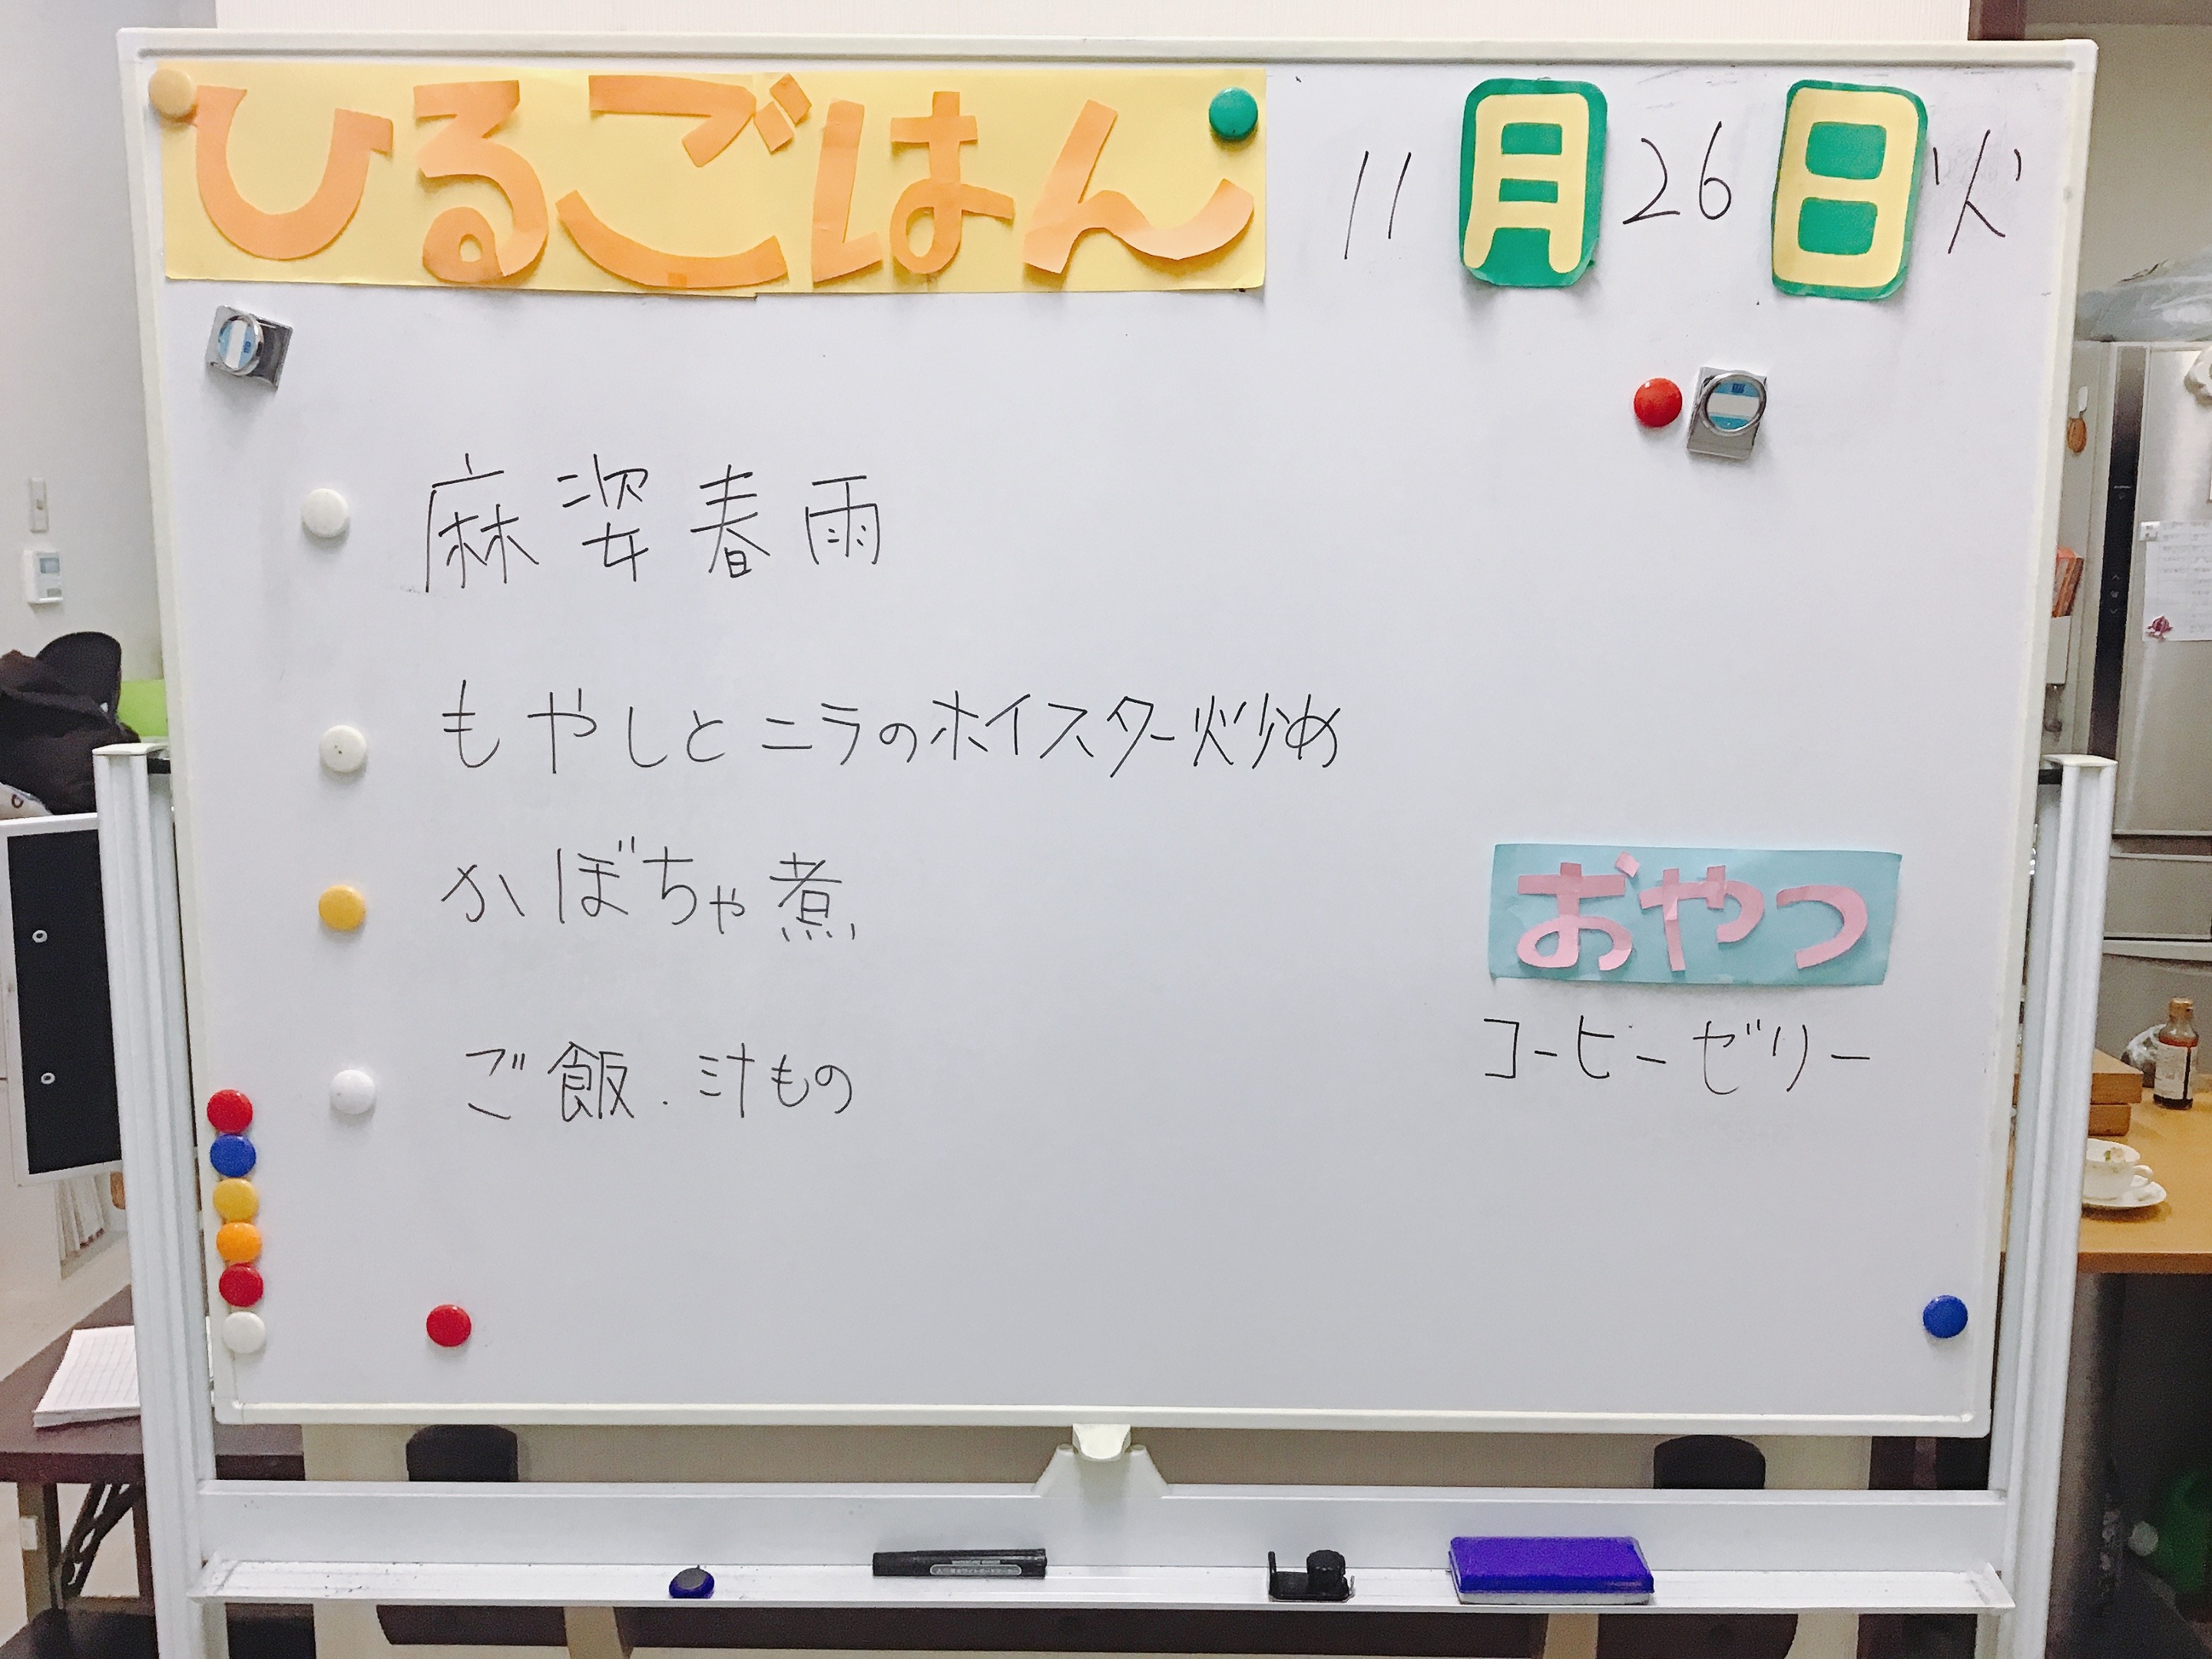 ひるごはん 11月26日 火
麻姿春雨
もやしとニラのホイスター炒め
かぼちゃ煮
ご飯.汁もの
おやつ
コーヒーゼリー